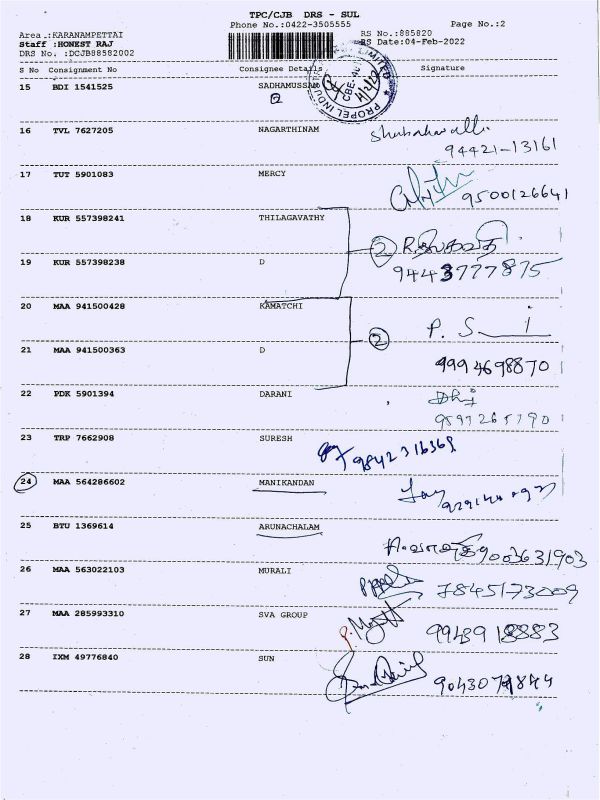 TPC/CJB DRS - SUL
Phone No.:0422-3505555 Page No.:2
Area :KARANAMPETTAI RS No.:885820
Staff :HONEST RAJ RS Date:04-Feb-2022
DRS No. :DCJB88582002
S No Consignment No Consignee Details Signature
15 BDI 1541525 SADHAMUSSAM
2
PROPEL INDUSTR LIMITED
CBE-4
4/2/22
16 TVL 7627205 NAGARTHINAM
94421-13161
17 TUT 5901083 MERCY
9500126641
18 KUR 557398241 THILAGAVATHY
2
19 KUR 557398238 D
9443777875
20 MAA 941500428 KAMATCHI
2 P. S
21 MAA 941500363 D
9994698870
22 PDK 5901394 DARANI
23 TRP 7662908 SURESH
9842316369
24 MAA 564286602 MANIKANDAN
25 BTU 1369614 ARUNACHALAM
9003631903
26 MAA 563022103 MURALI
7845173009
27 MAA 285993310 SVA GROUP
28 IXM 49776840 SUN